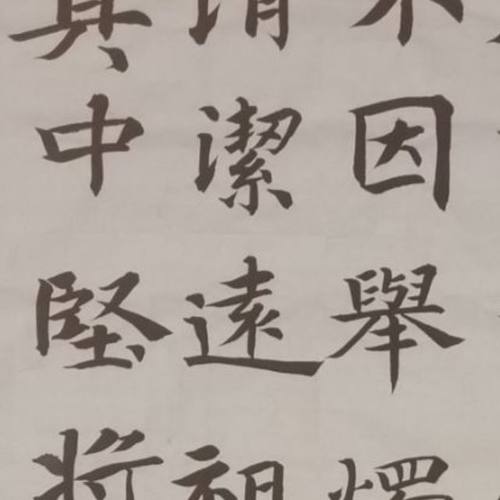 不因舉
清潔遠祖
其中堅將